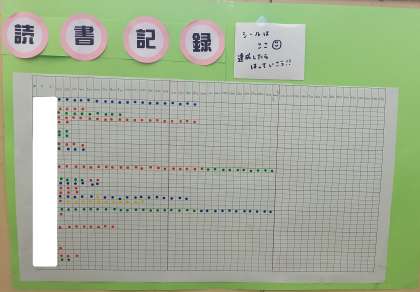 読書記録
シールは
ここ
達成したら
はっていこう!!